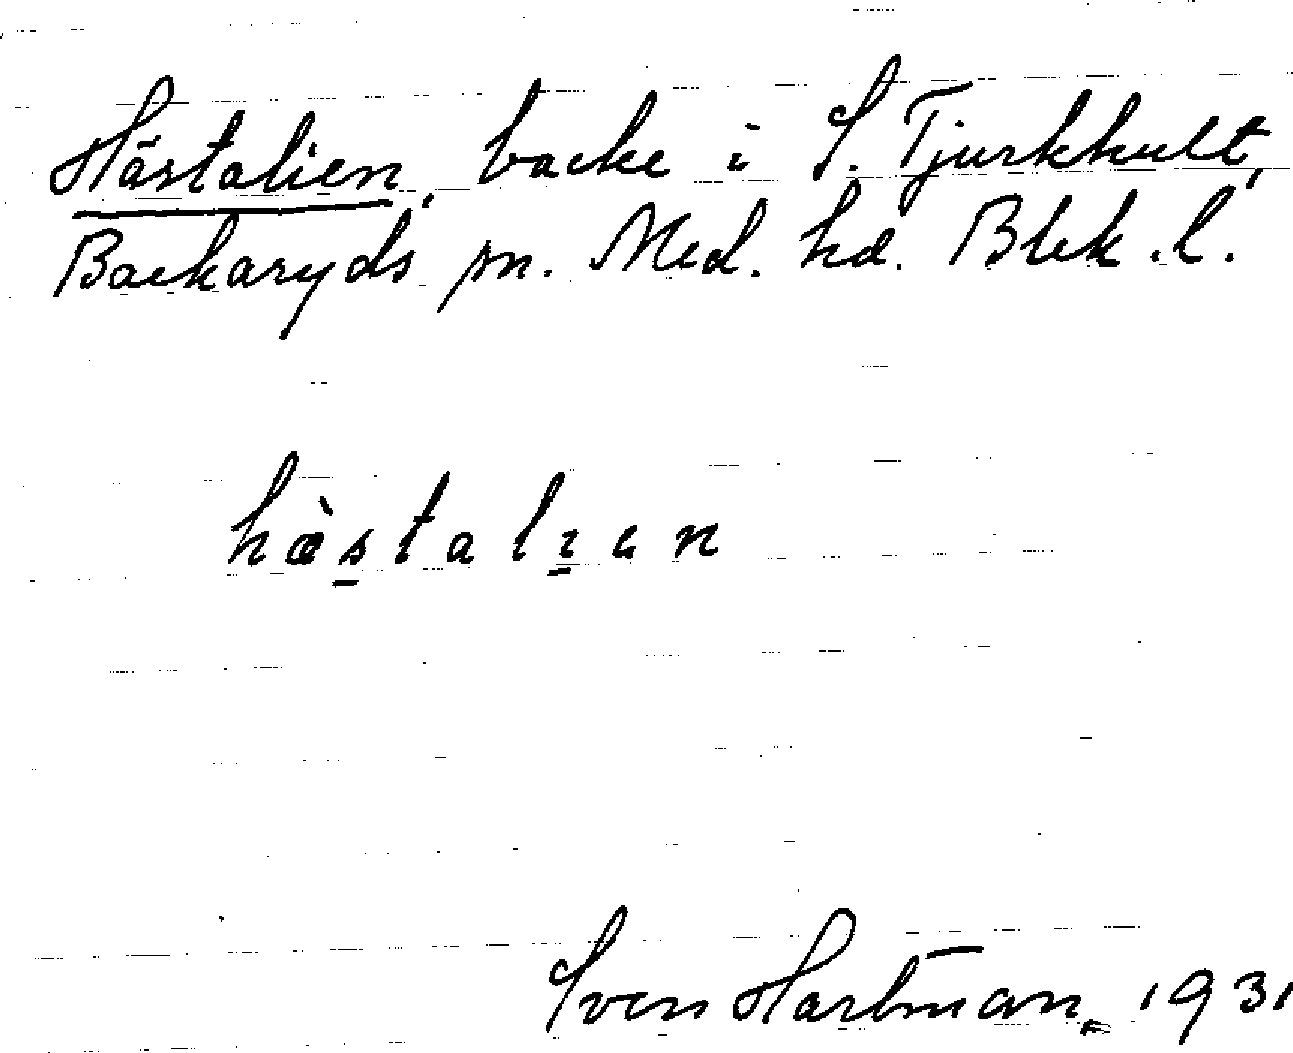 Hästalien, backe i S. Tjurkhult,
Backaryds sn. Med. hd. Blek. l.
hæ̀stalɪɐn
Sven Hartman, 1931